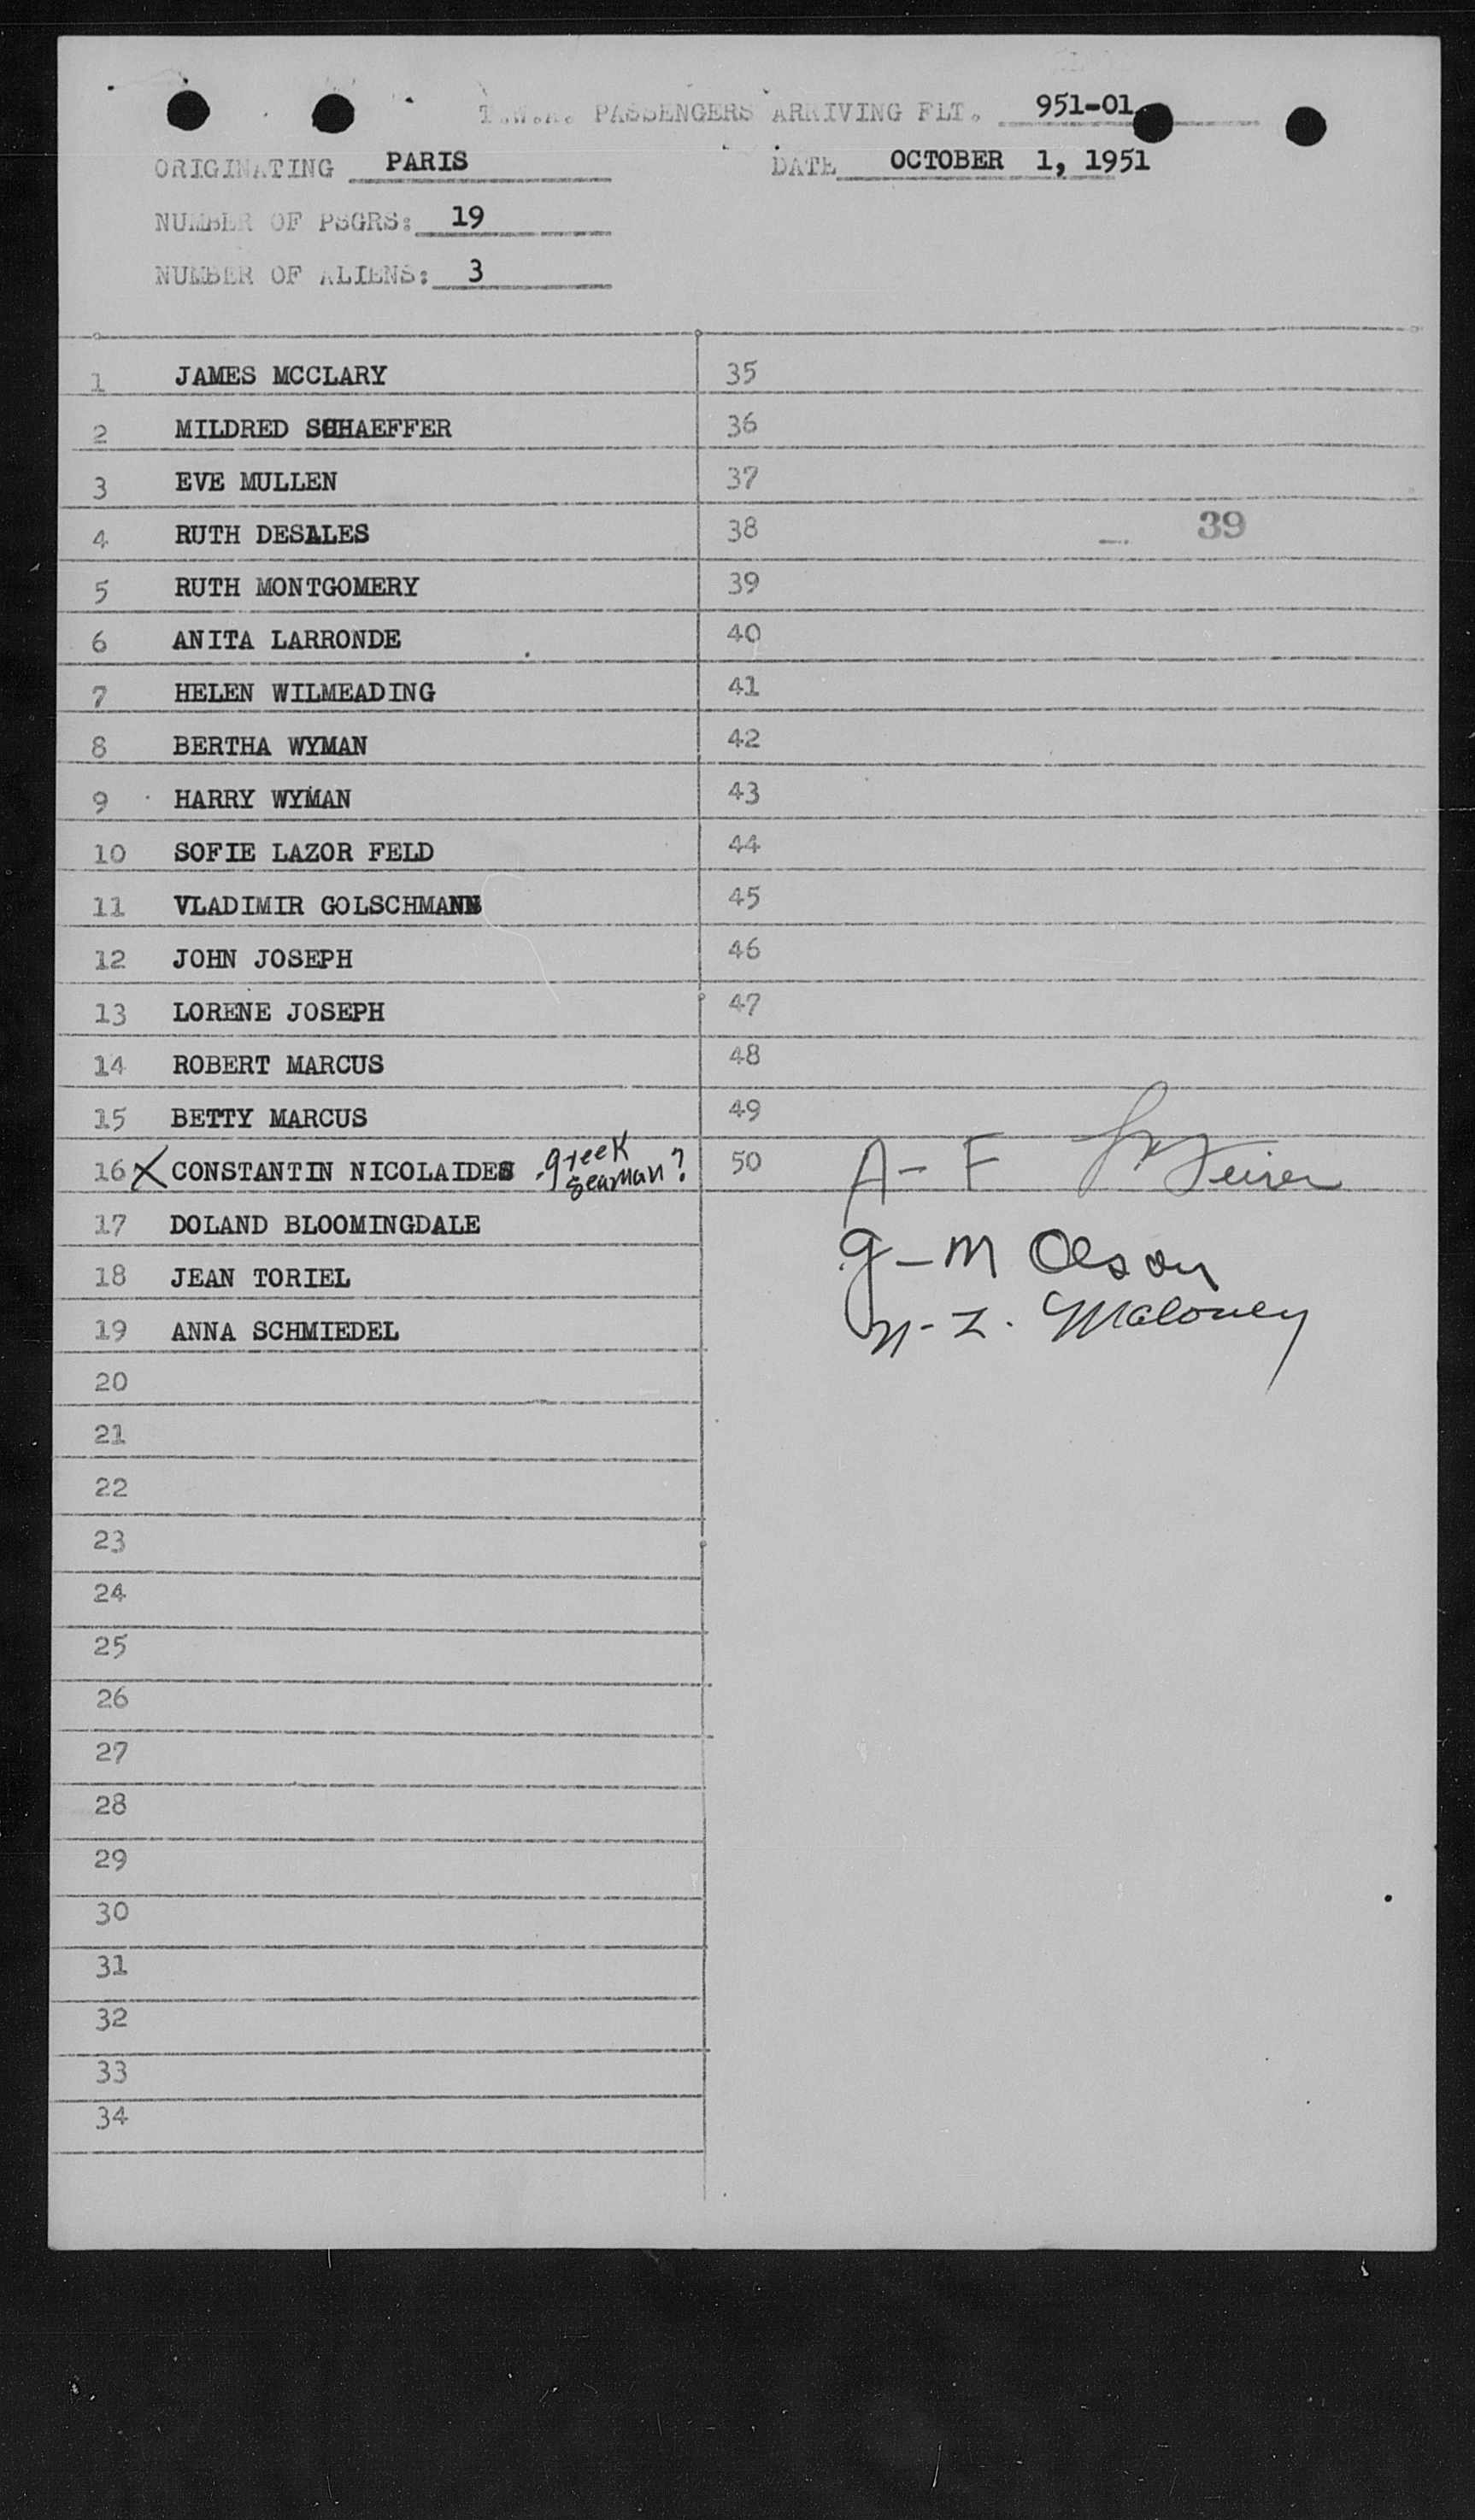 T.W.A. PASSENGERS ARRIVING FLT. 951-01
ORIGINATING PARIS DATE OCTOBER 1, 1951
NUMBER OF PSGRS: 19
NUMBER OF ALIENS: 3
1 JAMES MCCLARY
2 MILDRED SCHAEFFER
3 EVE MULLEN
4 RUTH DESALES
5 RUTH MONTGOMERY
6 ANITA LARRONDE
7 HELEN WILMEADING
8 BERTHA WYMAN
9 HARRY WYMAN
10 SOFIE LAZOR FELD
11 VLADIMIR GOLSCHMANN
12 JOHN JOSEPH
13 LORENE JOSEPH
14 ROBERT MARCUS
15 BETTY MARCUS
16 X CONSTANTIN NICOLAIDES - greek
seaman?
17 DOLAND BLOOMINGDALE
18 JEAN TORIEL
19 ANNA SCHMIEDEL
20
21
22
23
24
25
26
27
28
29
30
31
32
33
34
35
36
37
38 39
39
40
41
42
43
44
45
46
47
48
49
50 A- F
g-M Olson
n-z. Maloney